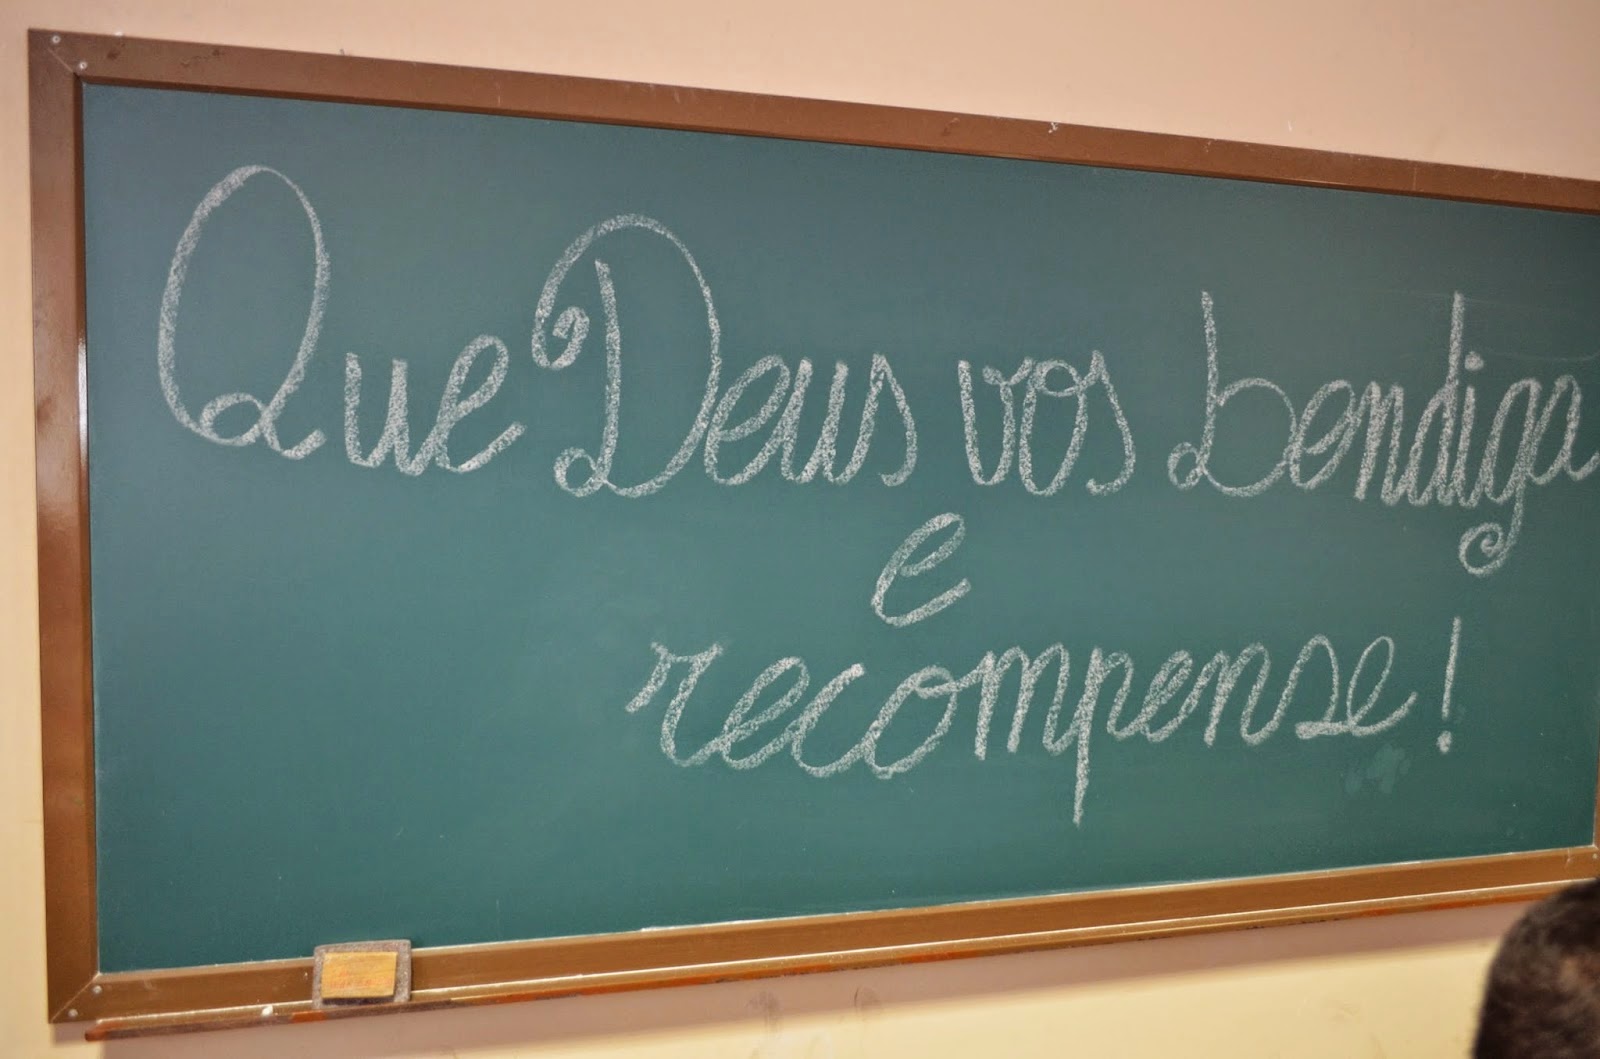 Que Deus vos bendiga
e
recompense!